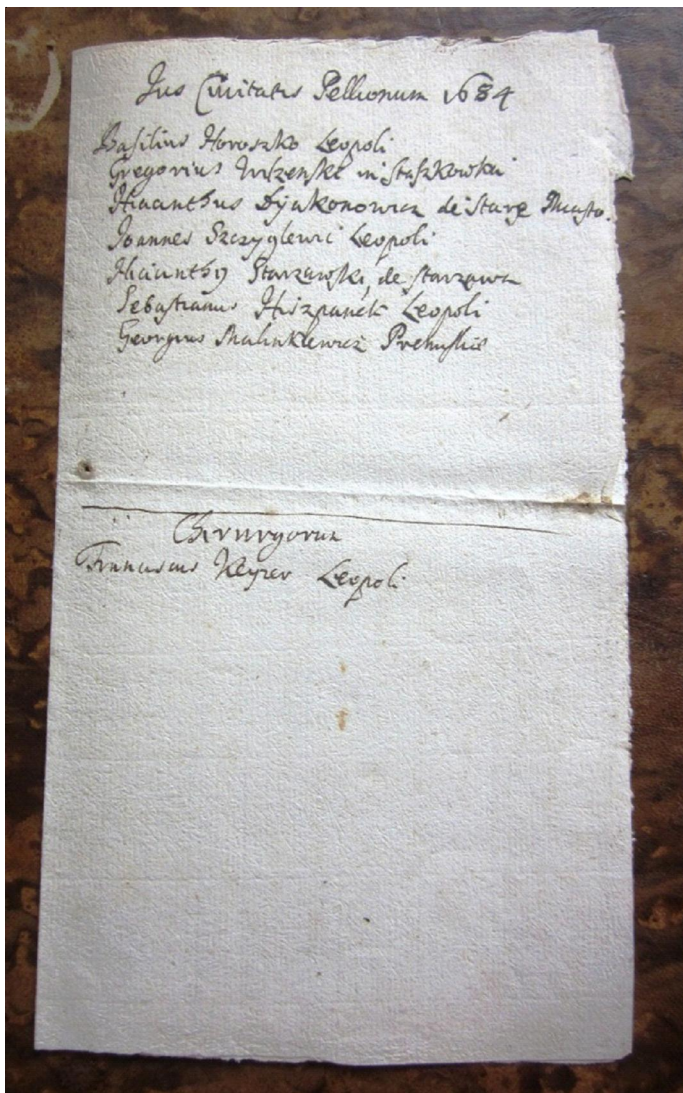 Jus Civitatis Pellionum 1684
Basilius Horoszko Leopoli
Gregorius in Staszkowski
Hiacinthus Dyakonowicz de Stare Miasto.
Joannes Szczyglewic Leopoli
Hiacinthy Starzawski, de Starzawa
Sebastianus Hiszpanek Leopoli
Georgius Malinkiewicz
Chirurgorum
Franciscus Keyzer Leopoli